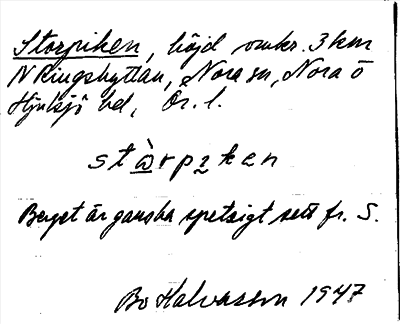 Storpiken, höjd omkr. 3 km
N Ringshyttan, Nora sn, Nora o
Hjulsjö bd, Ör. l.
stὼrpɩken
Berget är ganska spetsigt sett fr. S.
Bo Halvarsson 1947